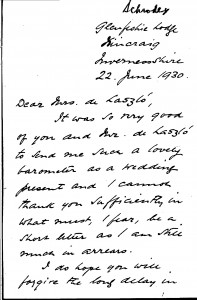 Schroder
Glenfeshie Lodge
Kincraig
Invernessshire
22. June 1930.
Dear Mrs. de László,
It was so very good
of you and Mr. de László
to send me such a lovely
barometer as a wedding
present and I cannot
thank you sufficiently, in
what must, I fear, be a
short letter as I am still
much in arrears.
I do hope you will
forgive the long delay in